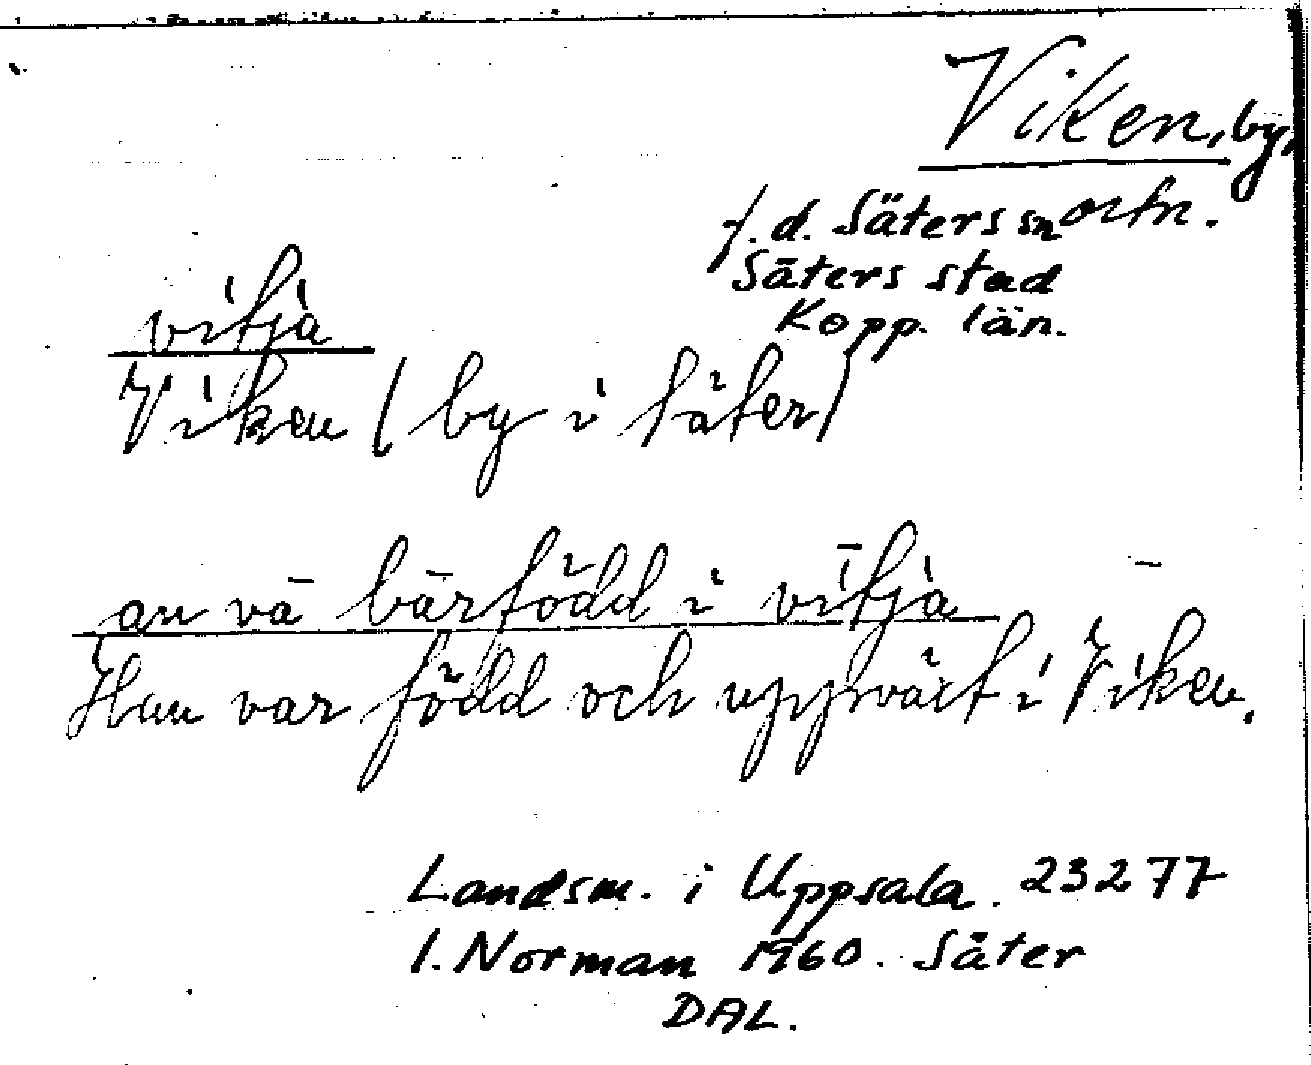 Viken, by,
f.d. Säters sn ortn.
Säters stad
Kopp. län.
vitja
Viken (by i säter)
an vā bārfödd i vītja
Han var född och uppväxt i Viken.
Landsm. i Uppsala. 23277
I. Norman 1960. Säter
DAL.